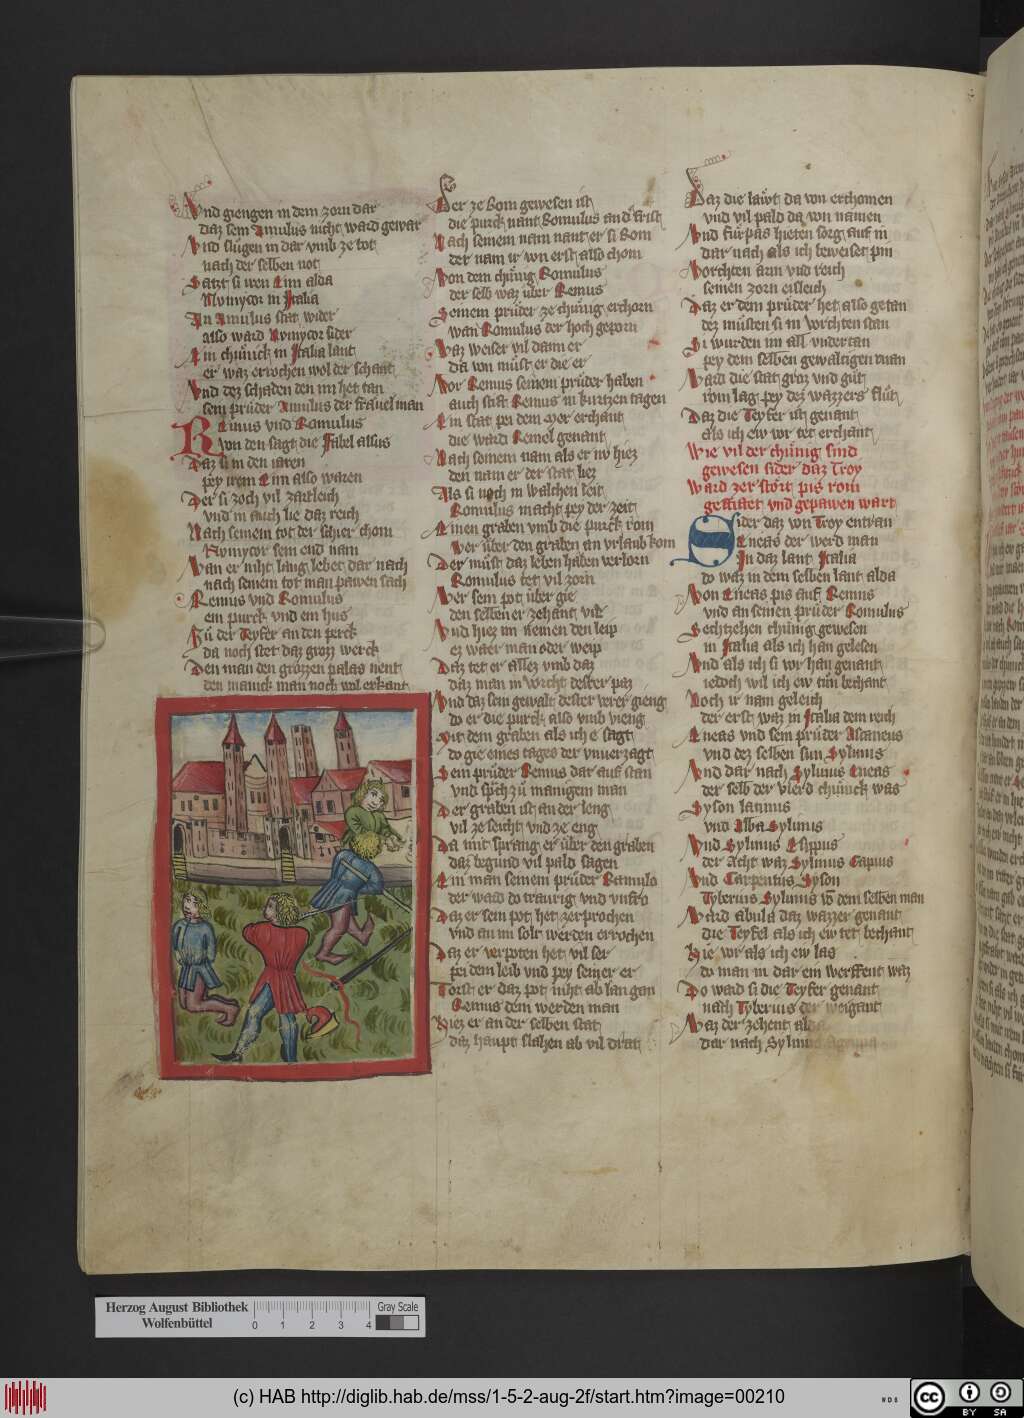 Vnd giengen in dem zorn dar
daz sein Amulus nicht ward gewar
Vnd slůgen in dar vmb ze tot
nach der selben not
Satzt si iren Eim alda
Nvmytor in Italia
An Amulus stat wider
also ward Nvmytor sider
Ein chůnick in Italia lant
er waz errochen wol der schant
Vnd dez schaden den im het tan
sein průder Amulus der frauel man
Remus vnd Romulus
von den sagt die Fabel alsus
Daz si in den iaren
pey irem Eim also waren
Der si zoch vil zartleich
vnd in auch lie daz reich
Nach seinem tot der schier chom
Nvmytor sein end nam
Wan er niht lang lebet dar nach
nach seinem tot man pawen sach
Remus vnd Romulus
ein purck vnd ein hus
Zů der Teyfer an den perck
da noch stet daz grozz werck
Den man den grozzen palas nent
den manick man noch wol erkant
Der ze Rom gewesen ist
die purck nant Romulus an der frist
Nach seinem nam nant er si Rom
der nam ir von erst also chom
Von dem chůnig Romulus
der selb waz über Remus
Seinem průder ze chůnig erchorn
wan Romulus der hoch geporn
Waz weiser vil dann er
da von můst er die er
Vor Remus seinem průder haben
auch stat Remus in kurtzen tagen
Ein stat pei dem Mer erchant
die ward Remel genant
Nach seinem nam als er nv hiez
den nam er der stat liez
Als si noch in walchen leit
Romulus macht pey der zeit
Einen graben vmb die purck rom
Wer über den graben an vrlaub kom
Der můst daz leben haben verlorn
Romulus tet vil zorn
Wer sein pot über gie
den selben er zehant vie
Vnd hiez im nemen den leip
ez waer man oder weip
Daz tet er allez vmb daz
daz man in vorcht dester paz
Vnd daz sein gewalt dester verer gieng
do er die purck also vmb vieng
Mit dem graben als ich e sagt
do gie eines tages der vnuerzagt
Sein průder Remus dar auf stan
vnd sprach zů manigem man
Der graben ist an der leng
vil ze seicht vnd ze eng
Da mit sprang er über den graben
daz begund vil pald sagen
Ein man seinem průder Romulo
der ward do traurig vnd vnfro
Daz er sein pot het zerprochen
vnd an im solt werden errochen
Daz er verpoten het vil ser
pei dem leib vnd pey seiner er
Torst er daz pot niht ab lan gan
Remus dem werden man
Hiez er an der selben stat
daz haupt slahen ab vil drat
Daz die läwt da von erchomen
vnd vil pald da von namen
Vnd fürpas hieten sorg auf in
dar nach als ich beweiset pin
Vorchten arm vnd reich
seinen zorn eisleich
Daz er dem průder het also getan
dez můsten si in vorchten stan
Si wurden im all vndertan
pey dem selben gewaltigen man
Ward die stat groz vnd gůt
rom lag pey dez wazzers flůt
Daz die Teyfer ist genant
als ich ew vor tet erchant
Wie vil der chünig sind
gewesen sider daz Troy
Ward zerstört pis rom
gestiftet vnd gepawen wart
Sider daz von Troy entran
Eneas der werd man
In daz lant Italia
do waz in dem selben lant alda
Von Eneas pis auf Remus
vnd an seinen průder Romulus
Sechtzehen chünig gewesen
in Italia als ich han gelesen
Vnd als ich si vor han genant
iedoch wil ich ew tůn bechant
Noch ir nam geleich
der erst waz in Italia dem reich
Eneas vnd sein průder Ascaneus
vnd dez selben sun Sylvius
Vnd dar nach Sylvius Eneas
der selb der vierd chůnick was
Syson latinus
vnd Alba Sylvius
Vnd Sylvius Egippus
der Acht waz Sylvius Capius
Vnd Carpentus Syson
Tyberius Sylvius von dem selben man
Ward abula daz wazzer genant
die Teyfel als ich ew tet bechant
Hie vor als ich ew las
do man in dar ein werffent waz
Do ward si die Teyfer genant
nach Tyberius der weigant
Waz der zehent alda
dar nach Sylvius Agrippa
Herzog August Bibliothek
Wolfenbüttel
0 1 2 3 4
Gray Scale
(c) HAB http://diglib.hab.de/mss/1-5-2-aug-2f/start.htm?image=00210
WDB
cc BY SA